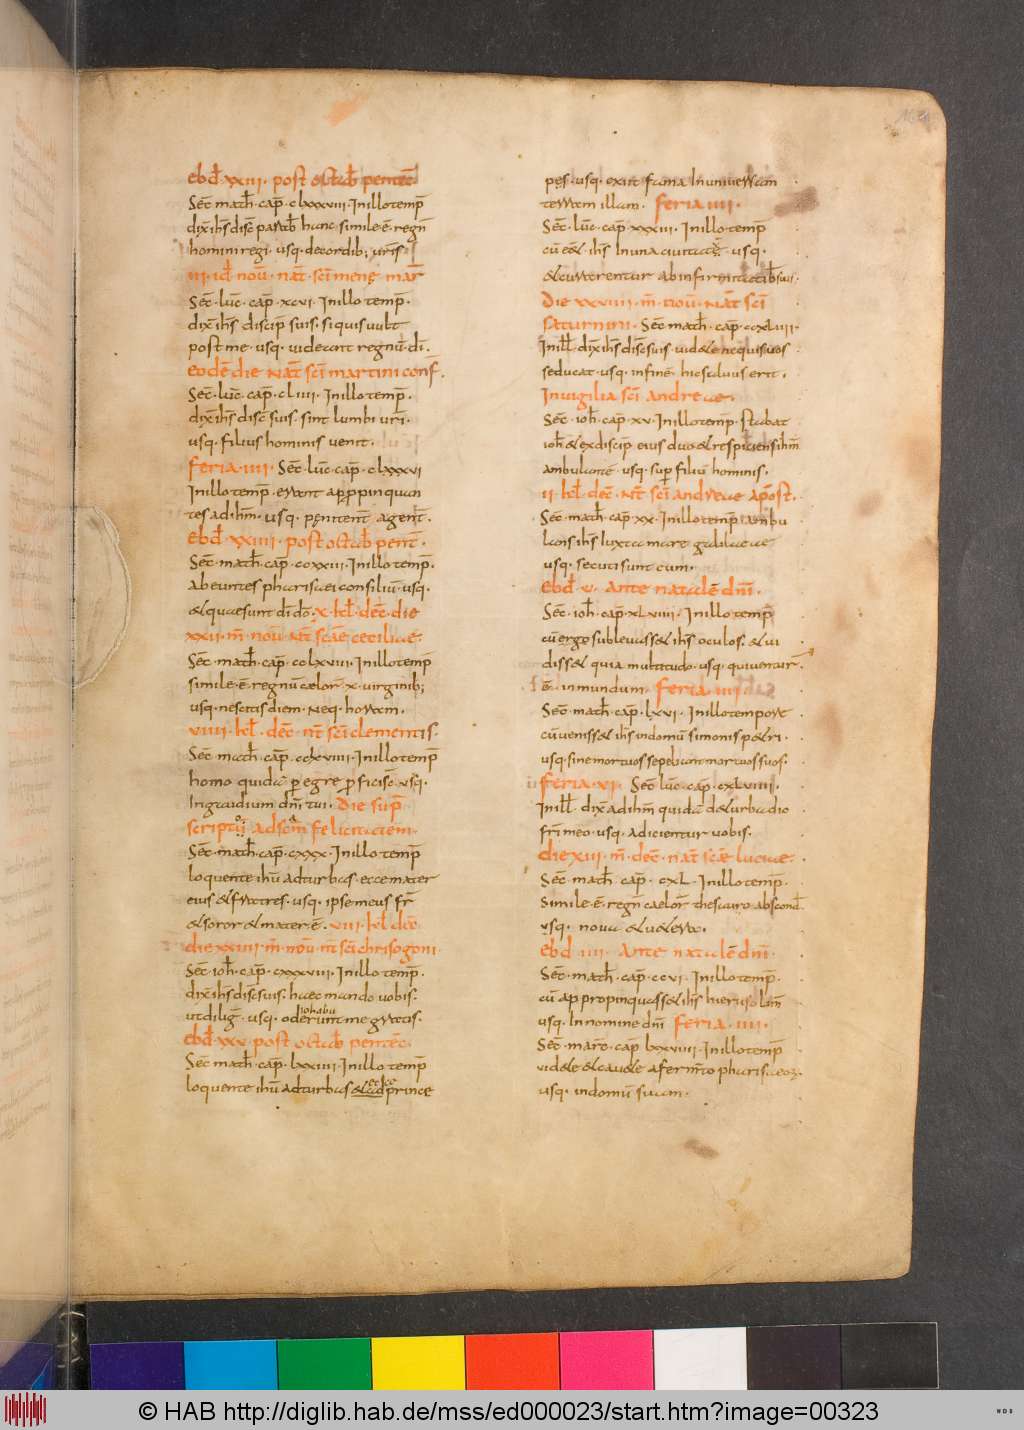 ebd̄ · xxiii · post octab̄ pentec̄
Sec̄ · math̄ · cap̄ · clxxxviii · Inillotemp̄
dix̄ ih̄s disc̄ parab̄ hanc · simile · ē · regn̄
homini regi · usq · decordib; ur̄is
iii · id̄ · nou̅ · nat̄ · sc̄i mene mar̄
Sec̄ · luc̄ · cap̄ · xcvi · Inillo temp̄ ·
dix̄ ih̄s discip̄ suis · siquis uult
post me · usq · uideant regnu̅ · dī ·
eode̅ die nat̄ sc̄i martini conf̄ ·
Sec̄ · luc̄ · cap̄ · cliiii · Inillo temp̄ ·
dix̄ ih̄s disc̄ suis · sint lumbi ur̄i ·
usq · filius hominis uenit ·
feria · iiii · Sec̄ · luc̄ · cap̄ · clxxxvi
Inillo temp̄ · erant appropinquan
tes ad · ih̄m · usq · penitent̄ agent̄ ·
ebd̄ · xxiiii · post octab̄ pent̄ ·
Sec̄ · math̄ · cap̄ · ccxxiii · Inillo temp̄ ·
Abeuntes pharisaei consiliu̅ · usq ·
& quaesunt dī dō · x · kl̄ · dec̄ · die
xxii · m̄ · nou̅ · nt̄ · sc̄ae ceciliae ·
Sec̄ · math̄ · cap̄ · cclxviii · Inillotemp̄
simile · ē · regnu̅ caelor̄ · x · uirginib;
usq · nescitis diem · neq · horam ·
viiii · kl̄ · dec̄ · nt̄ · sc̄i clementis ·
Sec̄ · math̄ · cap̄ · cclxviiii · Inillotemp̄
homo quida̅ peregre proficisc̄ · usq ·
In gaudium dn̄i tui · Die sup̄
scriptu̅ · ad sc̄am felicitatem ·
Sec̄ · math̄ · cap̄ · cxxx · Inillo temp̄
loquente ihu̅ ad turbas · ecce mater
eius & fratres · usq · ipse meus fr̄
& soror & mater · ē · viii · kl̄ · dec̄
die xxiiii · m̄ · nou̅ · nt̄ · sc̄i chrisogoni ·
Sec̄ · ioh̄ · cap̄ · cxxxviii · Inillo temp̄ ·
dix̄ ih̄s disc̄ suis · haec mando uobis ·
ut dilig̅ · usq · oderunt me gratis ·
ebd̄ · xxv · post octab̄ pentec̄ ·
Sec̄ · math̄ · cap̄ · lxxiiii · Inillo temp̄
loquente ihu̅ ad turbas & ecce prince
pes · usq · exiit fama In uniuersam
terram illam · feria · iiii ·
Sec̄ · luc̄ · cap̄ · xxxiii · Inillo temp̄
cu̅ ēē & ih̄s In una ciuitate · usq ·
& curarentur ab infirmitatib̄ suis ·
Die xxviiii · m̄ · nou̅ · nat̄ sc̄i
saturnini · Sec̄ math̄ · cap̄ · ccxliiii ·
Inill̄ · dix̄ ih̄s disc̄ suis · uidete nequis uos
seducat · usq · infine̅ · hic saluus erit ·
In uigilia sc̄i andreae ·
Sec̄ · ioh̄ · cap̄ · xv · Inillo temp̄ · stabat
ioh̄ & ex discip̄ eius duo & respiciens ih̄m
ambulante̅ · usq · sup̄ filiu̅ hominis ·
ii · kl̄ · dec̄ · nt̄ · sc̄i andreae apost̄ ·
Sec̄ · math̄ · cap̄ · xx · Inillo temp̄ ambu
lans ih̄s Iuxta mare galilaeae
usq · secuti sunt eum ·
ebd̄ · v · Ante natale̅ dn̄i ·
Sec̄ · ioh̄ · cap̄ · xlviiii · Inillo temp̄
cu̅ ergo subleuass& ih̄s oculos · & ui
diss& quia multitudo · usq · qui uentur̄ ·
ē · in mundum · feria · iiii ·
Sec̄ · math̄ · cap̄ · lxvi · Inillo tempore
cu̅ueniss& ih̄s in domu̅ simonis p&ri ·
usq · sine mortuos sepeliant mortuos suos ·
feria · vi · Sec̄ · luc̄ · cap̄ · cxlviiii ·
Inill̄ · dix̄ ad ih̄m quida̅ de turba dio
fr̄i meo · usq · adicientur uobis ·
die xiii · m̄ · dec̄ · nat̄ sc̄ae luciae ·
Sec̄ · math̄ · cap̄ · cxl · Inillo temp̄ ·
Simile · ē · regn̄ caelor̄ · thesauro abscond̄
usq · noua & uetera ·
ebd̄ · iiii · Ante natale̅ dn̄i ·
Sec̄ · math̄ · cap̄ · ccvi · Inillo temp̄ ·
cu̅ appropinquass& ih̄s hierusolim̄
usq · In nomine dn̄i · feria · iiii ·
Sec̄ · marc̄ · cap̄ lxxviiii · Inillo temp̄
uid&e & cau&e a fermto pharisaeor̄ ·
usq · in domu̅ suam ·
© HAB http://diglib.hab.de/mss/ed000023/start.htm?image=00323